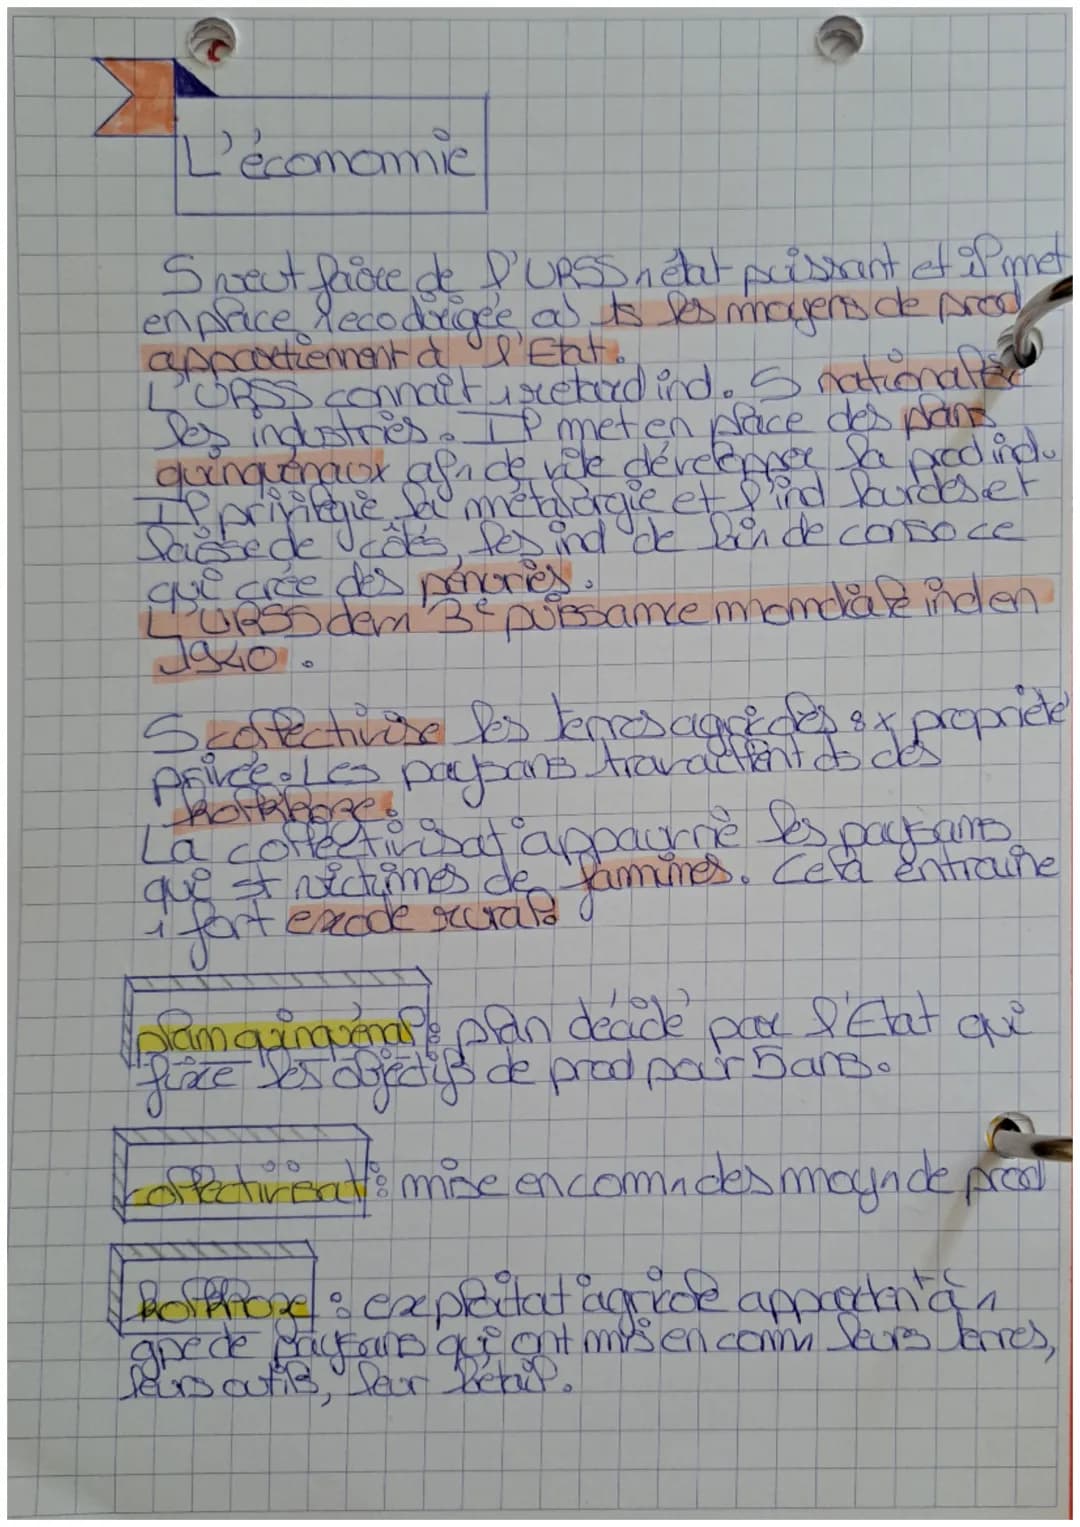 L'économie
S veut faire de l'URSS 1 état puissant et il met
en place 1 eco dirigée, où ts les moyens de prod
appartiennent à l'Etat.
L'URSS connaît 1 retard ind. S nationalise
les industries. Il met en place des plans
quinquénaux afin de vite développer la prod ind.
Il privilégie la métalurgie et l'ind lourdes et
laisse de côtés, les ind de bin de conso ce
qui crée des pénuries.
L'URSS dem 3e puissance mondiale ind en
1940.
S collectivise les terres agricoles : x propriété
privée. Les paysans travaillent ds des
kolkhoze.
La collectivisat° appauvrie les paysans
qui st victimes de famines. Cela entraine
1 fort exode rural.
plan quinquénal : plan décidé par l'Etat qui
fixe les objectifs de prod pour 5 ans.
collectivisat° : mise en comn des moyn de prod
kolkhoze : exploitat° agricole apparten't à 1
gpe de paysans qui ont mis en comm leurs terres,
leurs outils, leur bétail.